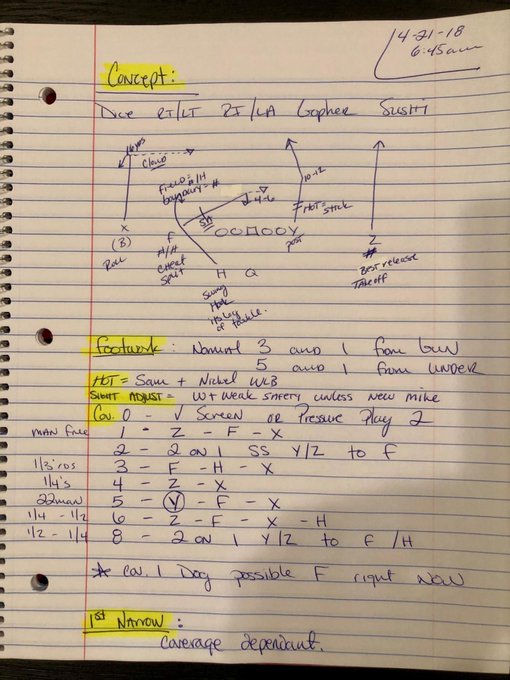 4-21-18
6:45am
Concept:
Dice RT/LT RI/LA Gopher Sushi
Cloud
Field = #/H
boundary = #
4-6
10-12
HOT = stick
SA
X
(B)
Roll
F
#/H
Cheat
Split
H Q
Swing
Hole
of tackle.
post
Z
#
Best release
Takeoff
Footwork: Normal 3 and 1 from Gun
5 and 1 from under
HOT = Sam + Nickel WLB
Sight Adjust = W + Weak Safety unless new mike
Cov. 0 - √ Screen or Pressure Play 2
MAN Free 1 - Z - F - X
2 - 2 on 1 SS Y/Z to F
1/3'rds 3 - F - H - X
1/4's 4 - Z - X
22man 5 - Y - F - X
1/4 - 1/2 6 - Z - F - X - H
1/2 - 1/4 8 - 2 on 1 Y/Z to F/H
* Cov. 1 Dog possible F right now
1st Narrow:
Coverage dependant.